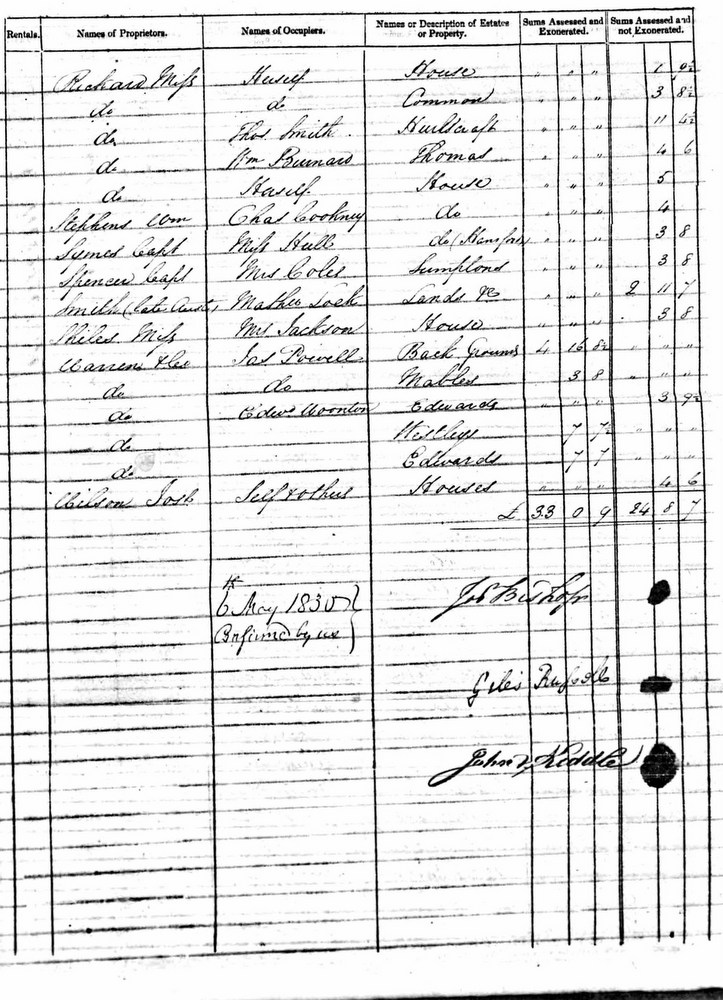 Rentals. Names of Proprietors. Names of Occupiers. Names or Description of Estates or Property. Sums Assessed and Exonerated. Sums Assessed and not Exonerated.
Richard Miss Herself House " " " 1 9½
do do Common " " " 3 8½
do Thos Smith Hurlscraft " " " 11 4½
do Wm Burnard Thomas " " " 4 6
do Herself House " " " 5
Stephens Wm Chas Cookney do " " " 4
Symes Capt Miss Hull do " " " 3 8
Spencer Capt Mrs Coles Sumptons " " " 3 8
Smith (late Mathw Lock Lands &c " " " 2 11 7
Miss Mrs Jackson House " " " 3 8
Warren Jas Powell Back Grounds 4 16 8½ " " "
do do Mables 3 8 " " "
do Edwd Woonton Edwards " " " 3 9½
do Westleys 7 7½ " " "
do Edwards 7 7 " " "
Wilson Josh Self & others Houses " " " 4 6
£ 33 0 9 24 8 7
6 May 1830
Confirmed by us
Jos Bishop
Giles Russell
John Kiddle